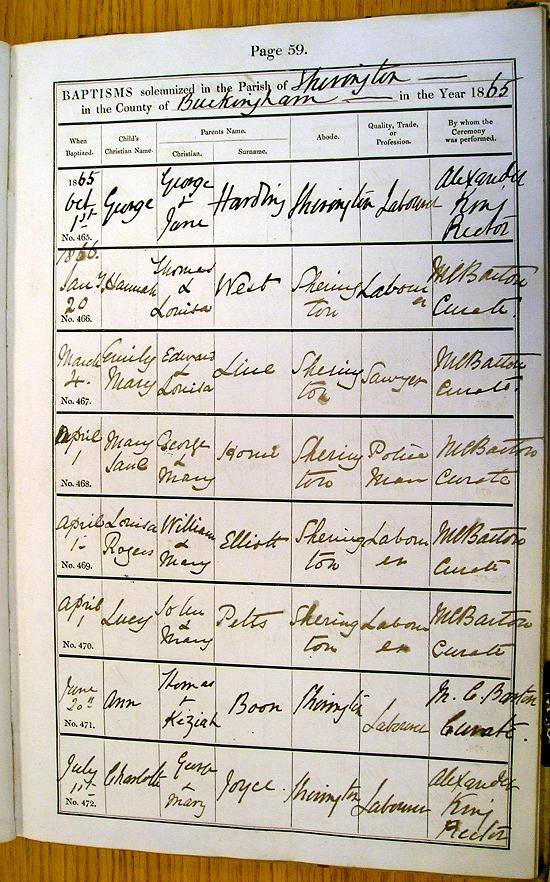 Page 59.
BAPTISMS solemnized in the Parish of Sherington
in the County of Buckingham in the Year 1865
When Baptized. Child's Christian Name. Parents Name. Christian. Surname. Abode. Quality, Trade, or Profession. By whom the Ceremony was performed.
1865 Oct 1st No. 465. George George & Jane Harding Sherington Labourer Alexander King Rector
1866. Jany 20 No. 466. Hannah Thomas & Louisa West Sherington Labourer M C Barton Curate
March 4. No. 467. Emily Mary Edward & Louisa Line Sherington Sawyer M C Barton Curate
April 1 No. 468. Mary Jane George & Mary Sherington Police Man M C Barton Curate
April 1 No. 469. Louisa Rogers William & Mary Elliott Sherington Labourer M C Barton Curate
April 1 No. 470. Lucy John & Mary Petts Sherington Labourer M C Barton Curate
June No. 471. Ann Thomas & Keziah Boon Sherington Labourer M. C. Barton Curate.
July 1st No. 472. Charlotte George & Mary Joyce Sherington Labourer Alexander King Rector